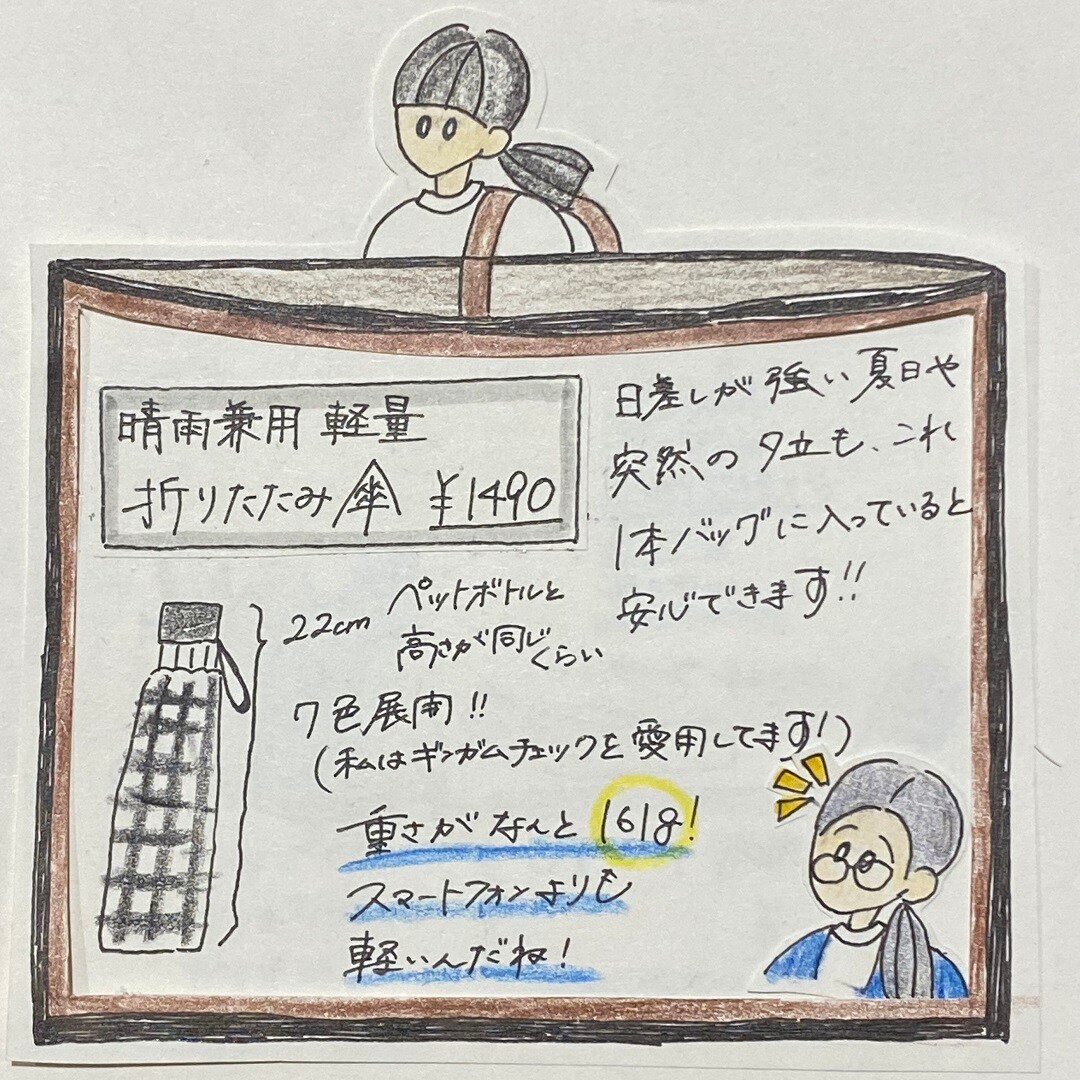 晴雨兼用 軽量
折りたたみ傘 ¥1490
日差しが強い夏日や
突然の夕立も、これ
1本バッグに入っていると
安心できます!!
22cm ペットボトルと
高さが同じくらい
7色展開!!
(私はギンガムチェックを愛用してます!)
重さがなんと161g!
スマートフォンよりも
軽いんだね!